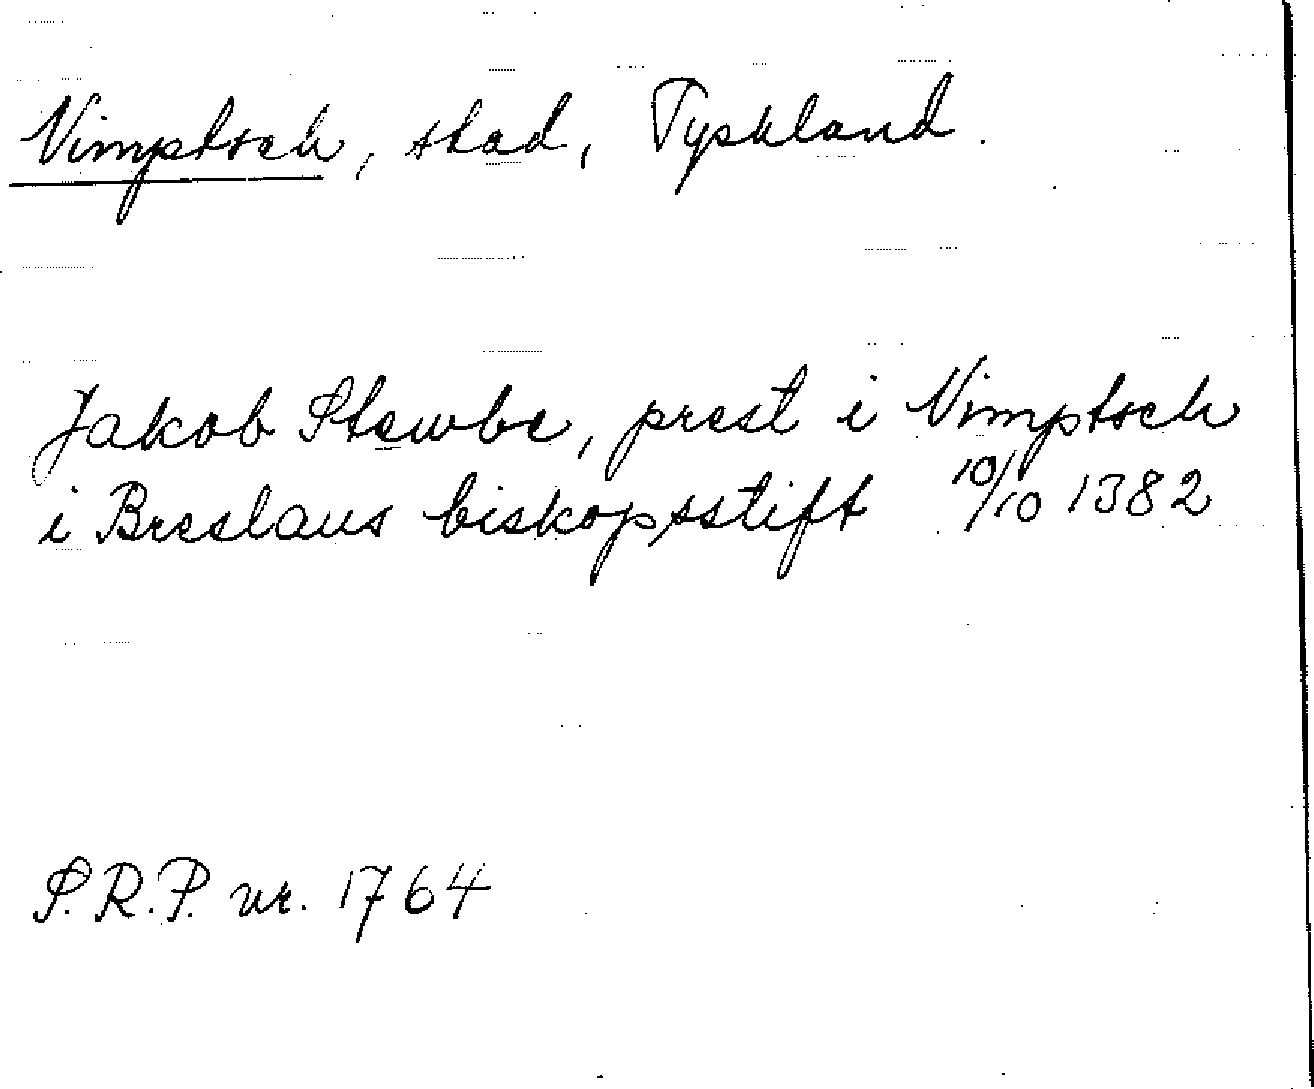 Nimptsch, stad, Tyskland.
Jakob Stewbe, prest i Nimptsch
i Breslaus biskopsstift 10/10 1382
S.R.P. nr. 1764